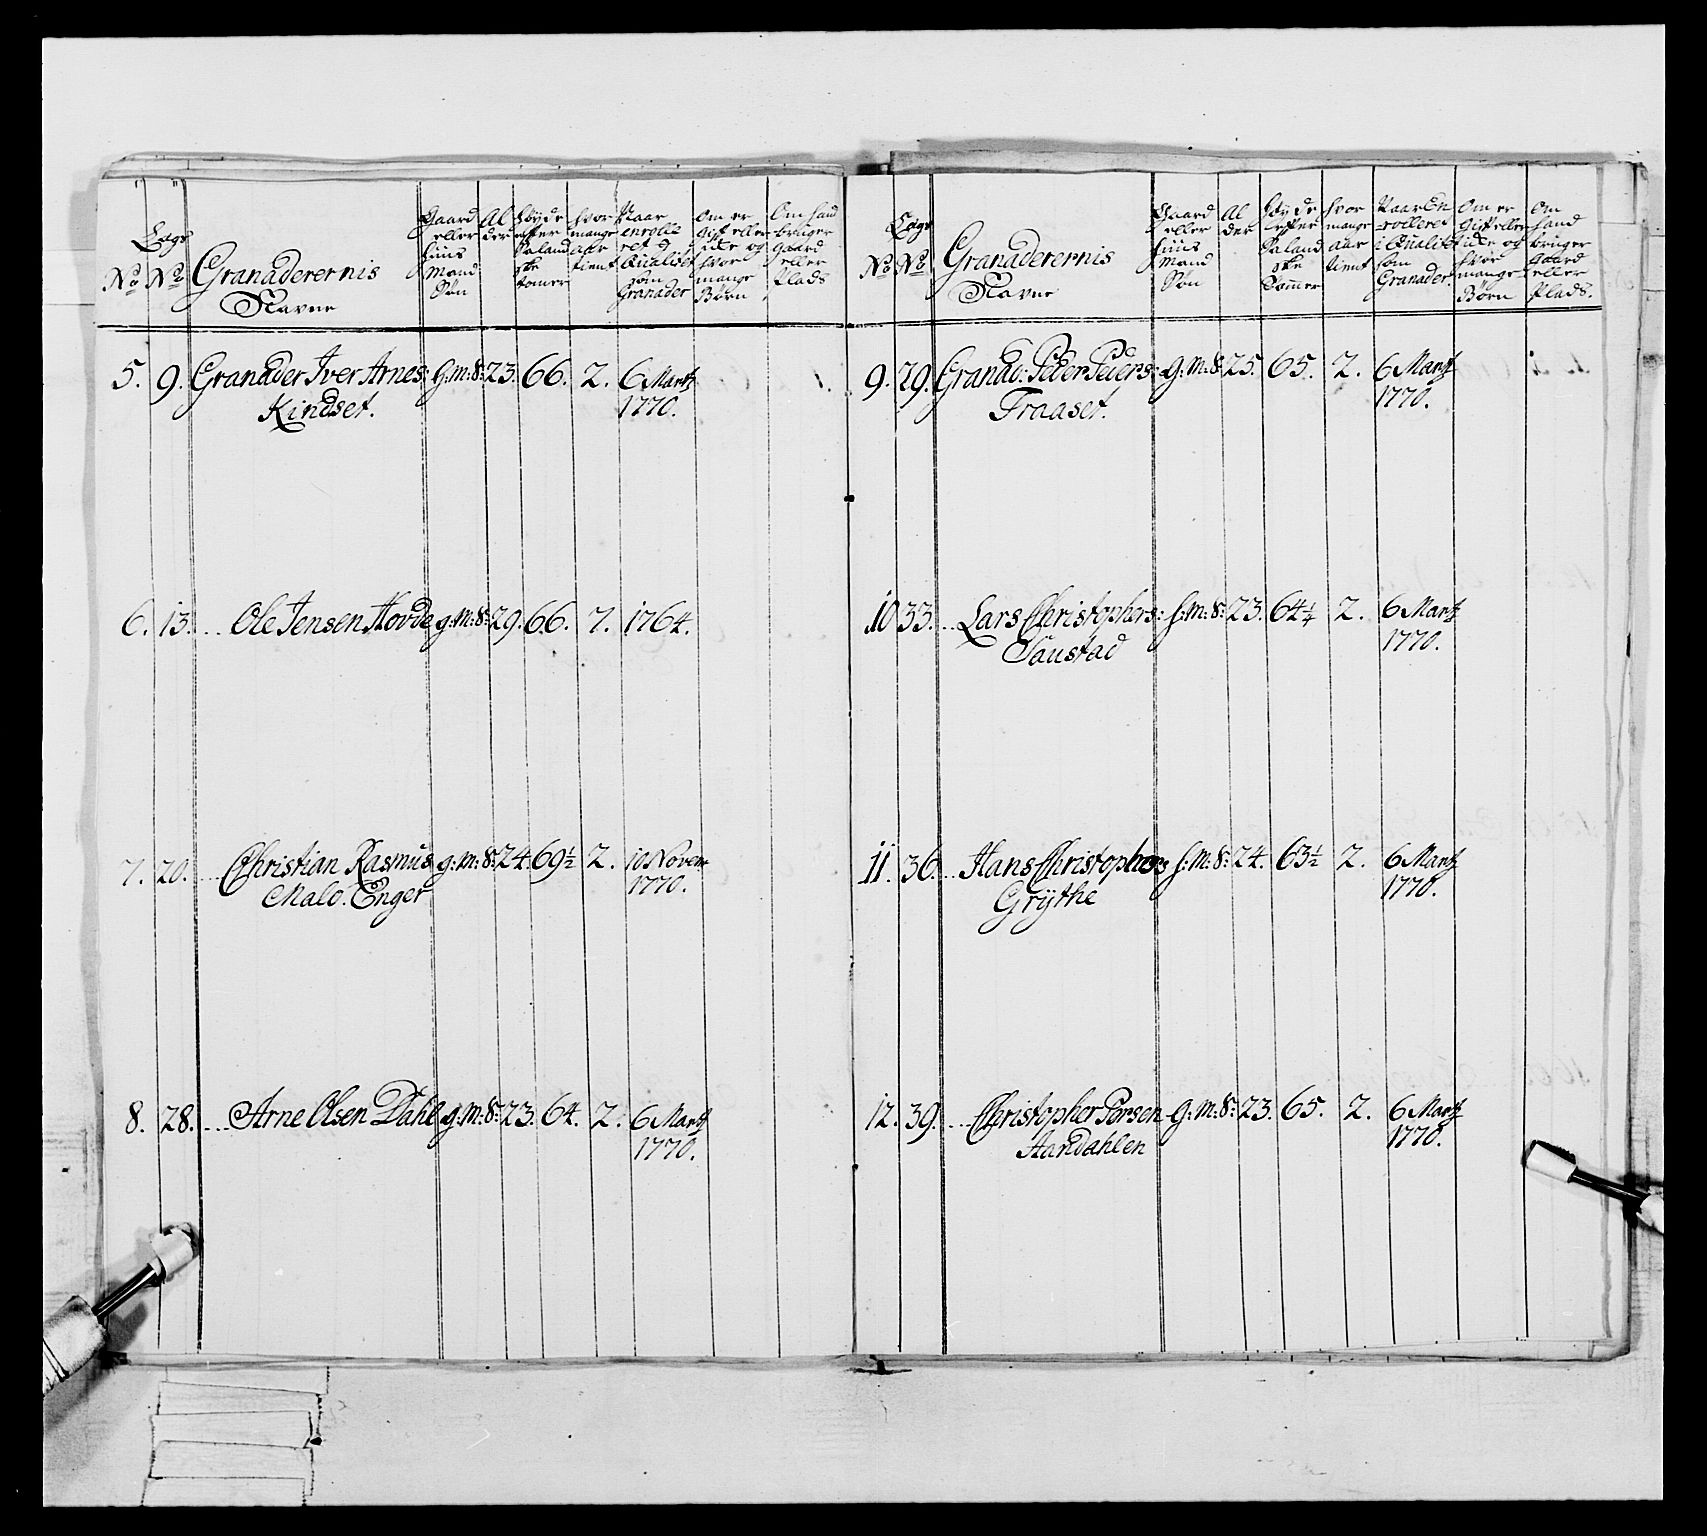 Lægs
No No Granaderernis Navne
Gaard eller Huus Mand Søn
Al der
Høyde efter Saland ske tomer
hvor mange aar tient
Naar enrolle ret i Qualitet som Granader
Om er Gift eller icke og hvor mange Børn
Om hand bruger Gaard eller Plads
5. 9. Granader Iver Arnes: g:m:S: 23. 66. 2. 6 Martz
Kindset. 1770.
6. 13. ... Ole Jensen Hovde g:m:S: 29. 66. 7. 1764.
7. 20. ... Christian Rasmus: g:m:S: 24. 69½ 2. 10 Novem
Malo. Enger 1770.
8. 28. ... Arne Olsen Dahl g:m:S: 23. 64. 2. 6 Martz
1770.
Lægs
No No Granaderernis Navne
Gaard eller Huus Mand Søn
Al der
Høyde efter Saland ske Tommer
hvor mange aar tient
Naar En rolleret i Qualitet som Granader.
Om er Gift eller icke og hvor mange Børn
Om hand bruger Gaard eller Plads.
9. 29. Granad: Peder Peders: g:m:S: 25. 65. 2. 6 Martz
Fraaset. 1770.
10 33. ... Lars Christophers: h:m:S: 23. 64¼ 2. 6 Martz
Saustad 1770.
11. 36. ... Hans Christophers h:m:S: 24. 63½ 2. 6 Martz
Grÿthe 1770.
12. 39. ... Christopher Torsen g:m:S: 23. 65. 2. 6 Martz
Aandahlen 1770.